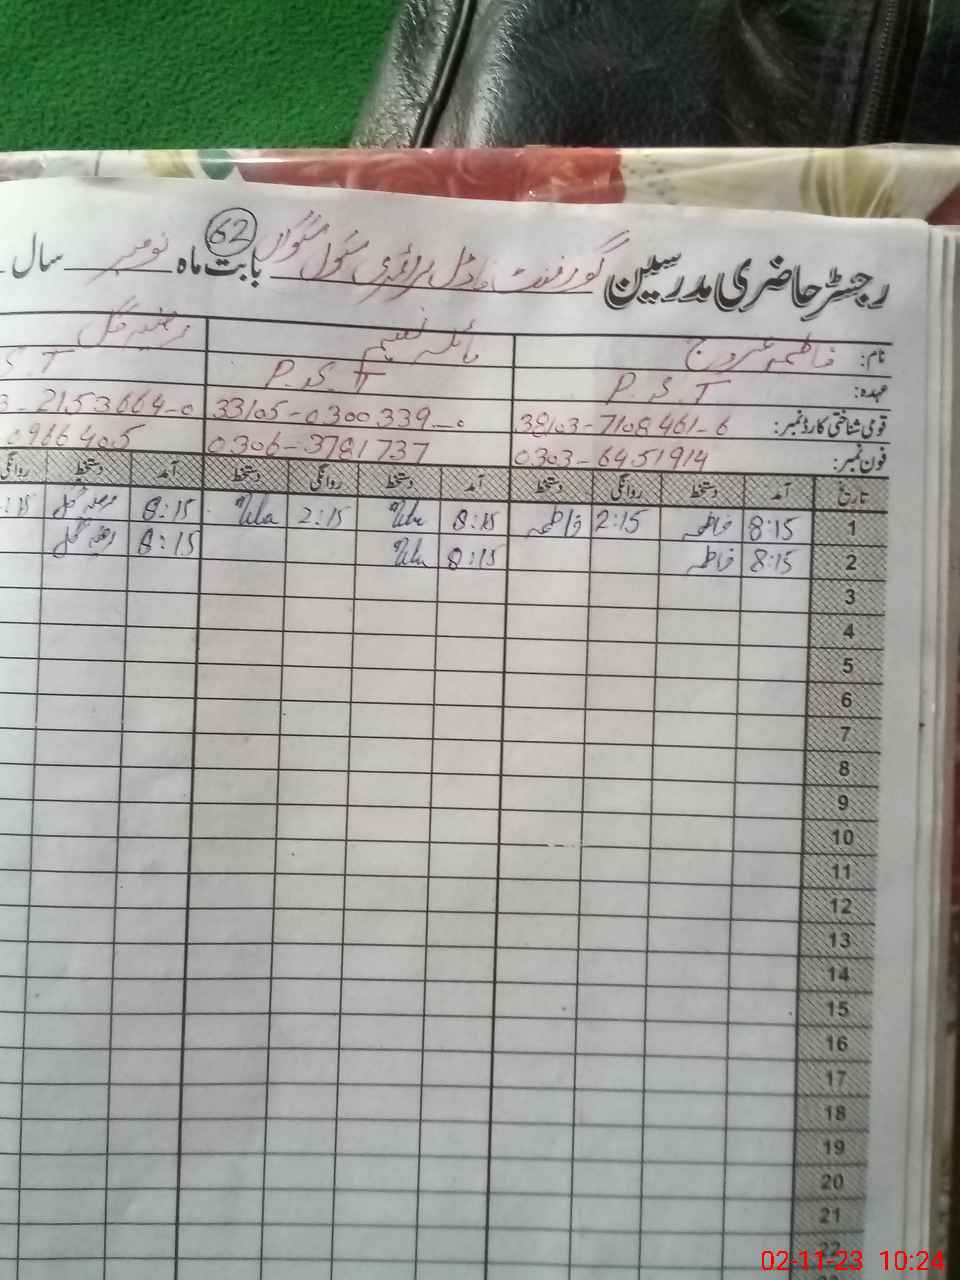 62
رجسٹر حاضری مدرسین گورنمنٹ ماڈل پرائمری سکول بابت ماہ نومبر سال
نام: فاطمہ عروج نائلہ نعیم رضیہ گل
عہدہ: P.S.T P.S.T S.T
قومی شناختی کارڈ نمبر: 38103-7108461-6 33105-0300339-0 3-2153664-0
فون نمبر: 0303-6451914 0306-3781737 0966405
تاریخ آمد دستخط روانگی دستخط آمد دستخط روانگی دستخط آمد دستخط روانگی
1 8:15 فاطمہ 2:15 فاطمہ 8:15 2:15 8:15 :15
2 8:15 فاطمہ 8:15 8:15
3
4
5
6
7
8
9
10
11
12
13
14
15
16
17
18
19
20
21
22
02-11-23 10:24